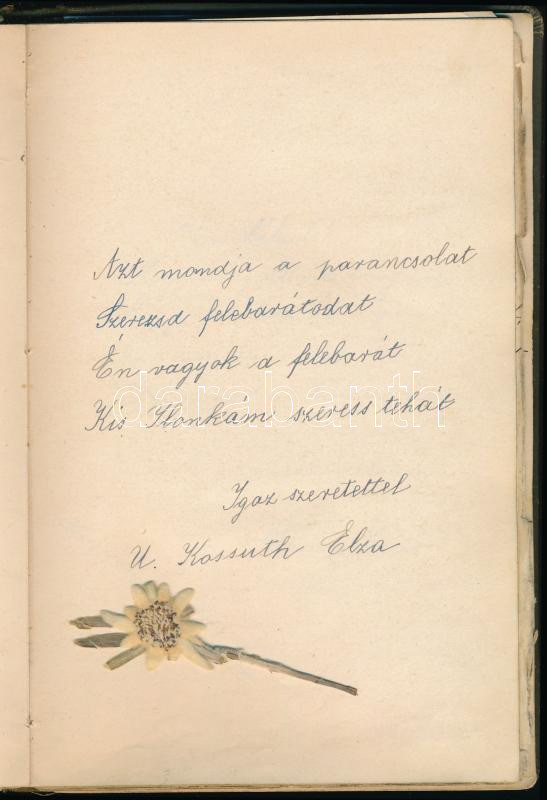 Azt mondja a parancsolat
Szerezsd felebarátodat
Én vagyok a felebarát
Kis Ilonkám szeress tehát
darabanth
Igaz szeretettel
U. Kossuth Elza